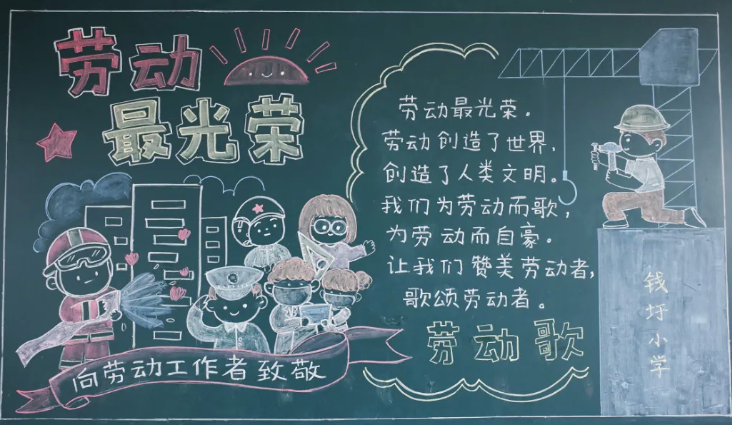 劳动
最光荣
劳动最光荣。
劳动创造了世界,
创造了人类文明。
我们为劳动而歌,
为劳动而自豪。
让我们赞美劳动者,
歌颂劳动者。
劳动歌
向劳动工作者致敬
钱圩小学